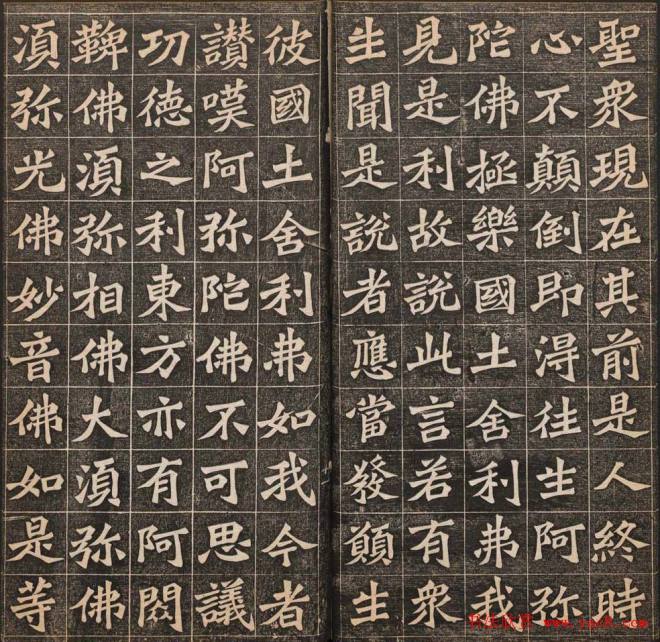 聖衆現在其前是人終時
心不顛倒即淂往生阿弥
陀佛極樂國土舍利弗我
見是利故說此言若有衆
生聞是說者應當發願生
彼國土舍利弗如我今者
讃嘆阿弥陀佛不可思議
功德之利東方亦有阿閦
鞞佛湏弥相佛大湏弥佛
湏弥光佛妙音佛如是等
书法欣赏 www.yac8.com